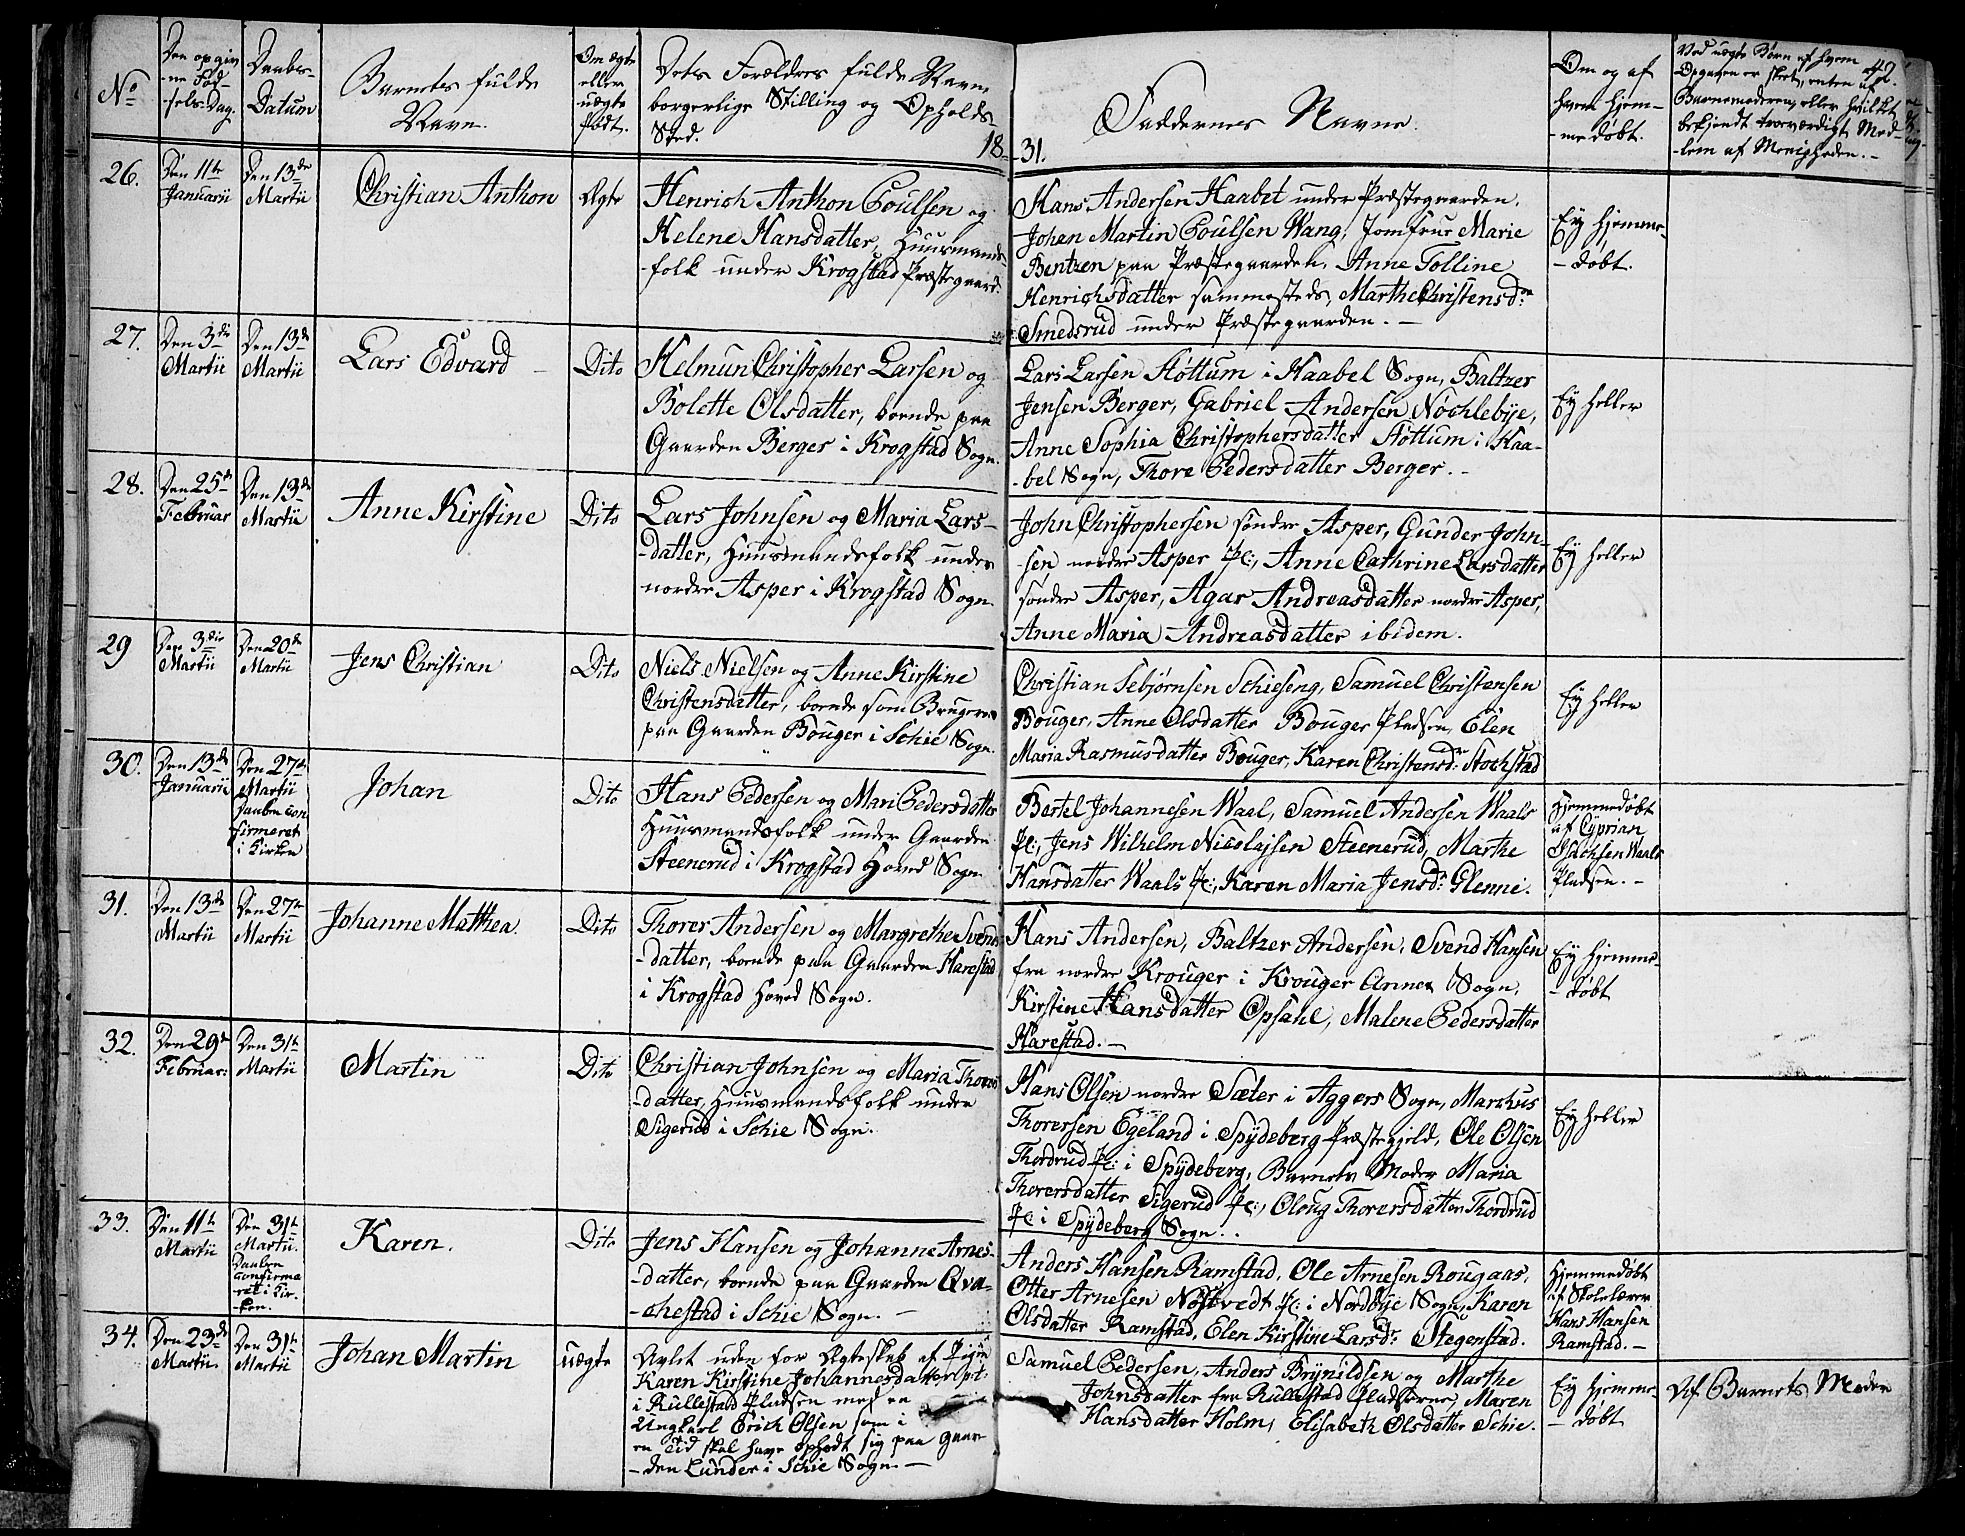 No
Den opgiv
-ne Föd-
-sels-Dag.
Daabs-
Datum
Barnets fulde
Navn.
Om ægte
eller
uægte
födt.
Dets Forældres fulde Navne
borgerlige Stilling og Opholds-
Sted.
18-
-31.
Faddernes Navne.
Om og af
hvem hjem-
-medøbt.
Ved uægte Børn af hvem
Opgaven er skeet, enten af
Barnemoderen, eller hvilket
bekjendt troeværdigt Med-
-lem af Menigheden.-
42.
26.
Den 11te
Januarii
Den 13de
Martii
Christian Anthon
Ægte
Henrich Anthon Poulsen og
Helene Hansdatter, Huusmands-
-folk under Krogstad Præstegaard.
Hans Andersen Haabet under Præstegaarden,
Johan Martin Poulsen Wang, Jomfrue Marie
Bentzen paa Præstegaarden, Anne Tolline
Henrichsdatter sammesteds, Marthe Christensdr
Smedsrud under Præstegaarden. -
Ey hjemme-
-døbt.
27.
Den 3die
Martii
Den 13de
Martii
Lars Edvard
Dito
Helmun Christopher Larsen og
Bolette Olsdatter, boende paa
Gaarden Berger i Krogstad Sogn.
Lars Larsen Støttum i Haabel Sogn, Baltzer
Jensen Berger, Gabriel Andersen Nøchlebye,
Anne Sophia Christophersdatter Støttum i Haa-
-bel Sogn, Thore Pedersdatter Berger.-
Ey heller
28.
Den 25de
Februar
Den 13de
Martii
Anne Kirstine
Dito
Lars Johnsen og Maria Lars-
-datter, Huusmandsfolk under
nordre Asper i Krogstad Sogn.
John Christophersen søndre Asper, Gunder John-
-sen nordre Asper Pl:, Anne Cathrine Larsdatter
søndre Asper, Agar Andreasdatter nordre Asper,
Anne Maria Andreasdatter ibidem.
Ey heller
29
Den 3die
Martii
Den 20de
Martii
Jens Christian
Dito
Niels Nielsen og Anne Kirstine
Christensdatter, boende som Brugere
paa Gaarden Bouger i Schie Sogn.
Christian Sebjørnsen Schieseng, Samuel Christensen
Bouger, Anne Olsdatter Bouger Pladsen, Elen
Maria Rasmusdatter Bouger, Karen Christensdr Stochstad
Ey heller
30.
Den 13de
Januarii
Den 27de
Martii
Daaben con
firmeret
i Kirken
Johan
Dito
Hans Pedersen og Mari Pedersdatter
Huusmandsfolk under Gaarden
Steenerud i Krogstad Hoved Sogn.
Bertel Johannesen Waal, Samuel Andersen Waals
Pl:, Jens Wilhelm Nicolajsen Steenerud, Marthe
Hansdatter Waals Pl:, Karen Maria Jensdr Glenne.
Hjemmedøbt
af Cyprian
Isachsen Waals
Pladsen.-
31.
Den 13de
Martii
Den 27de
Martii
Johanne Mathea.
Dito
Thorer Andersen og Margrethe Svends
-datter, boende paa Gaarden Harestad
i Krogstad Hoved Sogn.
Hans Andersen, Baltzer Andersen, Svend Hansen
fra nordre Krouger i Krouger Annex Sogn,
Kirstine Hansdatter Opsahl, Malene Pedersdatter
Harestad.-
Ey hjemme-
-døbt
32.
Den 29de
Februar:
Den 31te
Martii
Martin
Dito
Christian Johnsen og Maria Thorers
-datter, Huusmandsfolk under
Sigerud i Schie Sogn.
Hans Olsen nordre Sæter i Aggers Sogn, Marchus
Thorersen Egeland i Spydeberg Præstegjeld, Ole Olsen
Thordrud Pl: i Spydeberg, Barnets Moder Maria
Thorersdatter Sigerud Pl:, Oloug Thorersdatter Thordrud
Pl: i Spydeberg Sogn..
Ey heller
33.
Den 11te
Martii
Den 31te
Martii.
Daaben
Confirme
-ret i Kir-
-ken.
Karen.
Dito
Jens Hansen og Johanne Arnes-
-datter, boende paa Gaarden Qva-
-chestad i Schie Sogn.
Anders Hansen Ramstad, Ole Arnesen Rougaas,
Otter Arnesen Nøstvedt Pl: i Nordbye Sogn, Karen
Olsdatter Ramstad, Elen Kirstine Larsdr Stegenstad.
Hjemmedøbt
af Skolelærer
Hans Hansen
Ramstad.-
34.
Den 23de
Martii.
Den 31te
Martii
Johan Martin
uægte
Avlet uden for Ægteskab af Pigen
Karen Kirstine Johannesdatter
i Rullestad Pladsen med en
Ungkarl Erich Olsen som i
en Tid skal have opholdt sig paa Gaar-
-den Lunder i Schie Sogn.-
Samuel Pedersen, Anders Brynildsen og Marthe
Johnsdatter fra Rullestad Pladserne, Maren
Hansdatter Holm, Elisabeth Olsdatter Schie.
Ey hjemme-
-døbt
Af Barnets Moder